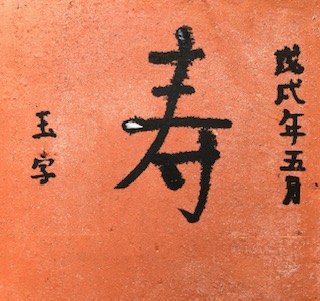 戊戌年五月
寿
玉字